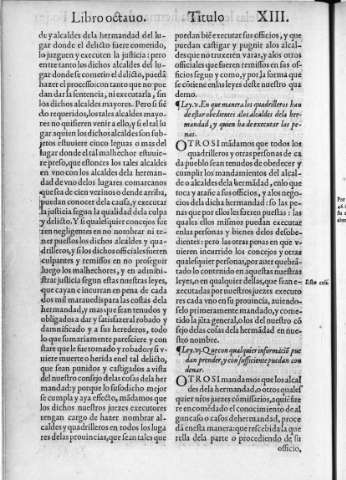 Libro octauo. Titulo XIII.
de y alcaldes dela hermandad del lu-
gar donde el delicto fuere cometido,
lo juzguen y executen la justicia: pero
entre tanto los dichos alcaldes del lu-
gar donde se cometio el delicto, puedã
hazer el processo con tanto que no pue
dan dar la sentencia, ni executarla, sin
los dichos alcaldes mayores. Pero si siẽ
do requeridos, los tales alcaldes mayo-
res no quisieren venir a ello, y si el tal lu
gar a quien los dichos alcaldes son sub-
jetos estuuiere cinco leguas o mas del
lugar donde el tal malhechor estuuie-
re preso, que estonces los tales alcaldes
en vno con los alcaldes dela herman-
dad de vno delos lugares comarcanos
que sea de cien vezinos o dende arriba,
puedan conocer dela causa, y executar
la justicia segun la qualidad dela culpa
y delicto. Y si qualquier concejos fue
ren negligentes en no nombrar ni te-
ner puestos los dichos alcaldes y qua-
drilleros, y si los dichos officiales fueren
culpantes y remissos en no proseguir
luego los malhechores, y en admini-
strar justicia segun estas nuestras leyes,
que cayan e incurran en pena de cada
dos mil marauedis para las costas dela
hermandad, y mas que sean tenudos y
obligados a dar y satisfazer al robado y
damnificado y a sus herederos, todo
lo que sumariamente pareciere y con
stare que le fue tomado y robado: y si v
uiere muerte o herida enel tal delicto,
que sean punidos y castigados a vista
del nuestro consejo delas cosas dela her
mandad: y porque lo susodicho mejor
se cumpla y aya effecto, mãdamos que
los dichos nuestros juezes executores
tengan cargo de hazer nombrar al-
caldes y quadrilleros en todos los luga
res delas prouincias, que sean tales que
puedan biẽ executar sus officios, y que
puedan castigar y pugnir alos alcal-
des que no truxeren varas, y alos otros
officiales que fueren remissos en sus of-
ficios segun y como, y por la forma que
se cõtiene enlas leyes deste nuestro qua
derno.
¶ Ley.v. En que manera los quadrilleros hau
de estar obedientes alos alcaldes dela her-
mandad, y quien ha de executar las pe-
nas.
OTROSI mãdamos que todos los
quadrilleros y otras personas de ca
da pueblo sean tenudos de obedecer y
cumplir los mandamientos del alcal-
de o alcaldes dela hermãdad, enlo que
toca y atañe a sus officios, y alos nego-
cios dela dicha hermandad: so las pe-
nas que por ellos les fueren puestas: las
quales ellos mismos puedan executar
enlas personas y bienes delos desobe-
dientes: pero las otras penas en que v-
uieren incurrido los concejos y otras
qualesquier personas, por auer quebrã-
tado lo contenido en aquestas nuestras
leyes, o en qualquier dellas, que sean e-
xecutadas por nuestros juezes executo
res cada vno en su prouincia, auiendo-
selo primeramente mandado, y come-
tido la jũta general, o los del nuestro cõ
sejo delas cosas dela hermãdad en nue-
stro nombre.
¶ Ley.vj. Que con qualquier informaciõ pue
dan prender, y con sufficiente puedan con
denar.
OTROSI mandamos que los alcal
des dela hermandad, o otros quales
quier nr̃os juezes cõmissarios, a quiẽ fue
re encomẽdado el conocimiento de al
gun caso o casos de hermandad, proce
da en esta manera: que rescebida la que
rella dela parte o procediendo de su
officio,